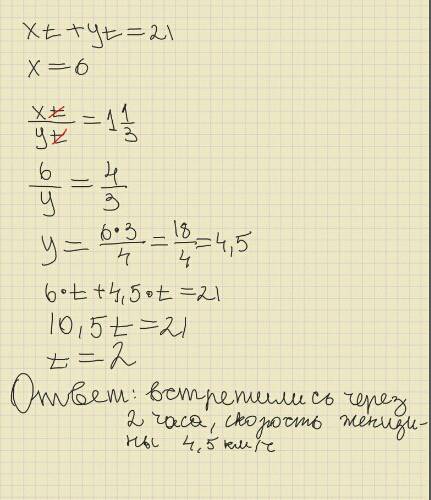 xt + yt = 21
x = 6
xt/yt = 1 1/3
6/y = 4/3
y = 6·3/4 = 18/4 = 4,5
6·t + 4,5·t = 21
10,5t = 21
t = 2
Ответ: встретились через
2 часа, скорость женщи-
ны 4,5 км/ч